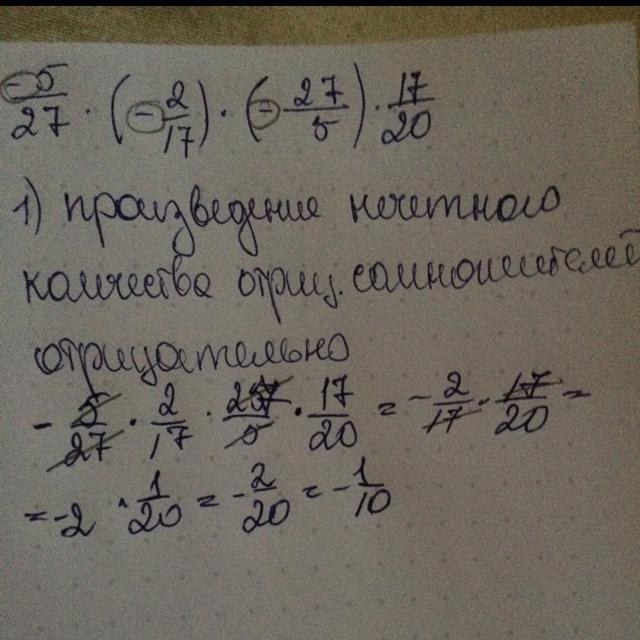 -5/27 · (-2/17) · (-27/5) · 17/20
1) произведение нечетного
количества отриц. сомножителей
отрицательно
- 5/27 · 2/17 · 27/5 · 17/20 = - 2/17 · 17/20 =
= -2 · 1/20 = - 2/20 = - 1/10